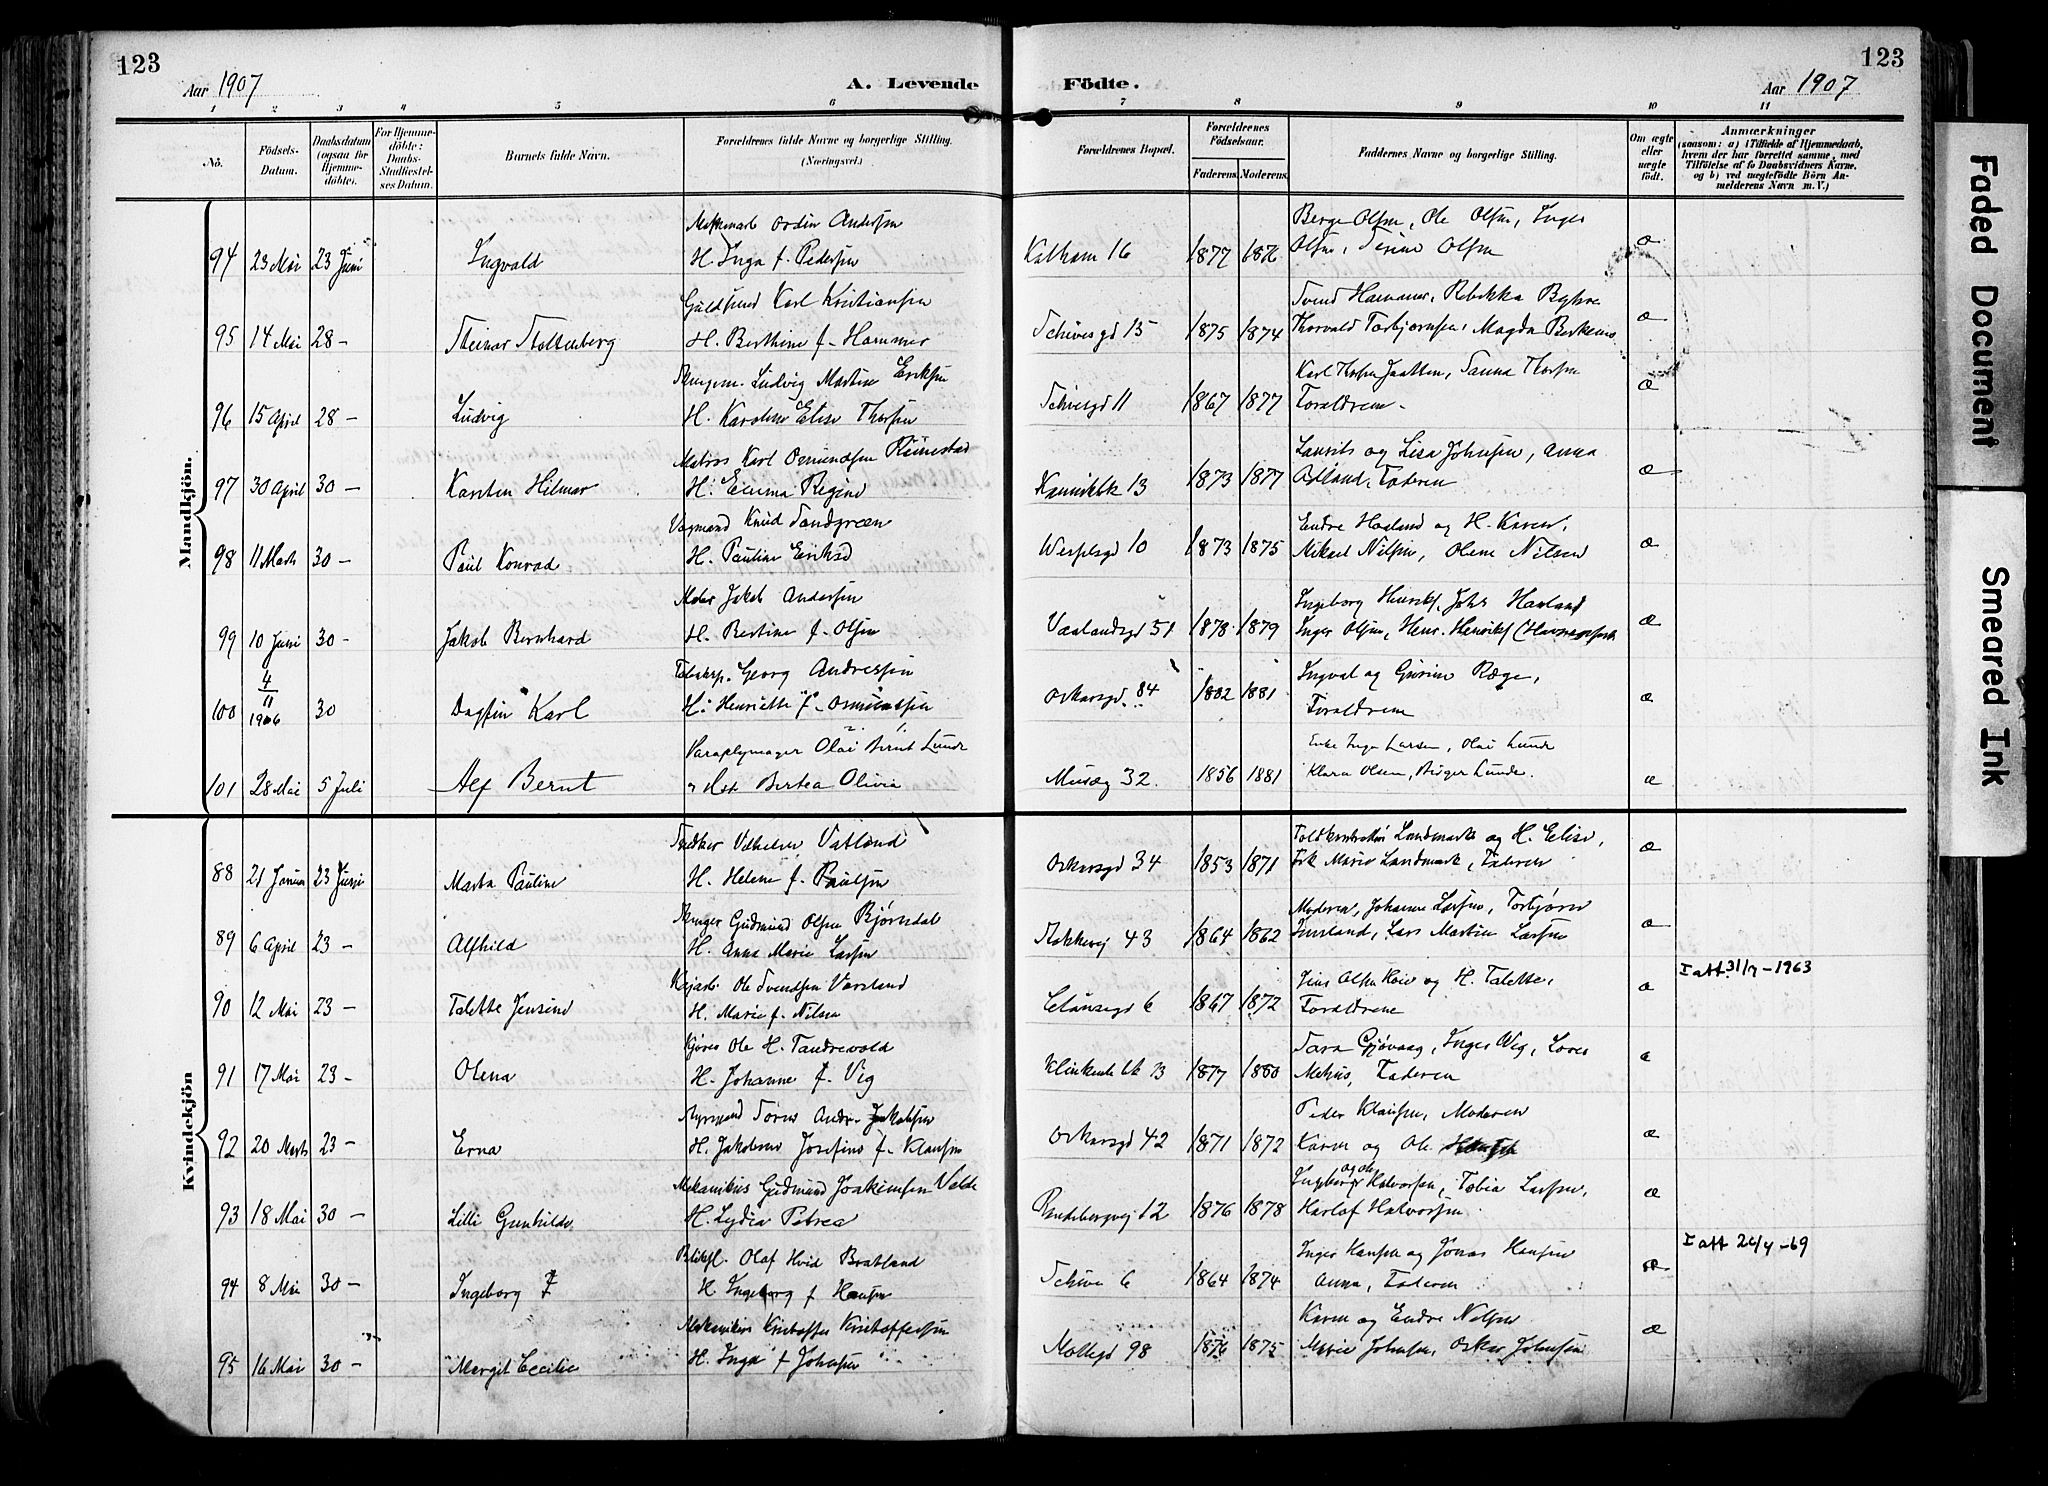 123
Aar 1907
A. Levende
1 2 3 4 5 6
No.
Födsels-Datum.
Daabsdatum (ogsaa for Hjemmedöbte).
For Hjemmedöbte: Daabs-Stadfæstelses Datum.
Barnets fulde Navn.
Forældrenes fulde Navne og borgerlige Stilling. (Næringsvei.)
Mandkjön.
Ordin Andersen
94 23 Mai 23 Juni Ingvald H. Inga f. Pedersen
Guldsmed Karl Kristiansen
95 14 Mai 28 — Steinar Stoltenberg H. Berthine f. Hammer
Ludvig Martin Eriksen
96 15 April 28 — Ludvig H. Karoline Elise Thorsen
Matros Karl Osmundsen Reinestad
97 30 April 30 — Karsten Hilmar H. Emma Regine
Vognmand Knud Sandgreen
98 11 Marts 30 — Paul Konrad H. Pauline Eriksd
Maler Jakob Andersen
99 10 Juni 30 — Jakob Bernhard H. Bertine f. Olsen
Georg Andresen
100 4/11 1906 30 Dagfin Karl H. Henriette f. Osmundsen
Paraplymager Olai Bernt Lunde
101 28 Mai 5 Juli Alf Bernt Bertea Olivia
Kvindekjön
Snedker Vilhelm Vatland
88 21 Januar 23 Juni Marta Pauline H. Helene f. Paulsen
Gudmund Olsen Bjørndal
89 6 April 23 — Alfhild H. Anna Marie Larsen
Ole Svendsen Varsland
90 12 Mai 23 — Talette Jensine H. Marie f. Nilsen
Kjører Ole H. Tandrevold
91 17 Mai 23 — Olena H. Johanne f. Vig
Styrmand Søren Andr. Jakobsen
92 20 Marts 23 — Erna H. Jakobine Josefine f. Klausen
Mekanikus Gudmund Joakimsen Valde
93 18 Mai 30 — Lilli Gunhilde H. Lydia Petrea
Bliksl. Olaf Hvid Bratland
94 8 Mai 30 — Ingeborg H Ingeborg f Hansen
Mekanikus Kristoffer Kristoffersen
95 16 Mai 30 — Margit Cecilie H. Inga f Johnsen
123
Födte.
Aar 1907
7 8 9 10 11
Forældrenes Bopæl.
Forældrenes Födselsaar.
Faderens. Moderens.
Faddernes Navne og borgerlige Stilling.
Om ægte eller uægte födt.
Anmærkninger
(saasom: a) i Tilfælde af Hjemmedaab, hvem der har forrettet samme, med Tilföielse af to Daabsvidners Navne. og b) ved uægtefödte Börn Anmelderens Navn m. V.)
Berge Olsen, Ole Olsen, Inger
Kalham 16 1877 1876 Olsen, Serine Olsen æ
Svend Hammer, Rebekka Byhre
Schivesgd 15 1875 1874 Thorvald Torbjørnsen, Magda æ
Karl Thorsen Jaatten, Sanna Thorsen
Schivesgd 11 1867 1877 Forældrene. æ
Laurits og Lisa Johnsen, Anna
Kannikbk 13 1873 1877 Ådland, Faderen æ
Endre Haaland og H. Karen,
10 1873 1875 Mikael Nilsen, Olene Nilsen æ
Ingeborg Henriks, Johs Haaland
Vaalandsgd 51 1878 1879 Inger Olsen, Henr. Henriks æ
Ingval og Gurine Ræge,
Oskarsgd. 84 1882 1881 Forældrene æ
Enke Inga Larsen, Olai Lunde
Musæg 32 1856 1881 Klara Olsen, Birger Lunde. æ
Landmark og H. Elise,
Oskarsgd 34 1853 1871 Frk Marie Landmark, Faderen æ
Moderen, Johanne Larsen, Torbjørn
Stokkavej 43 1864 1862 Lars Martin Larsen æ
Jens Olsen og H. Talette,
6 1867 1872 Forældrene æ
I att 31/7 – 1963
Sara Gjøvaag, Inger Vig, Lores
13 1877 1880 Mehus, Faderen æ
Peder Klausen, Moderen
Oskarsgd 42 1871 1872 Karen og Ole æ
Ingeborg og Ole Halvorsen, Tobia Larsen,
Randabergvej 12 1876 1878 Harlof Halvorsen æ
Inger Hansen og Jonas Hansen
Schive 6 1864 1874 Anna, Faderen æ
I att 26/4 – 69
Karen og Endre Nilsen
98 1876 1875 Marie Johnsen, Oskar Johnsen æ
Faded Document
Smeared Ink